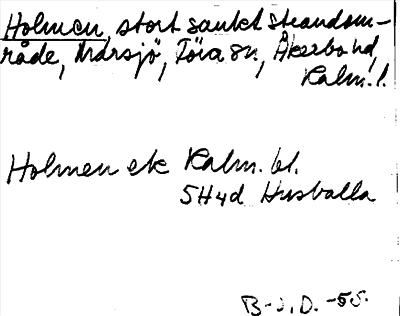 Holmen, stort sankt strandom-
råde, Marsjö, Törla sn, Åkerbo hd,
Kalm. l.
Holmen ek Kalm. bl.
5H4d Husvalla
B-J. D. -55.